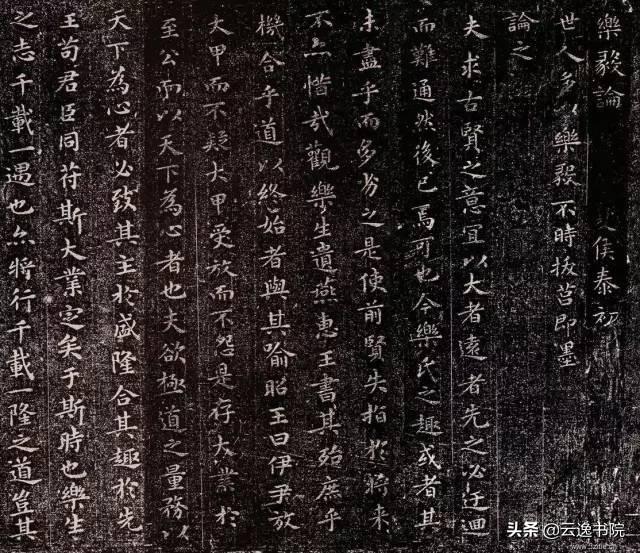 樂毅論 侯泰初
世人多以樂毅不時拔莒即墨
論之
夫求古賢之意宜以大者遠者先之必迂迴
而難通然後已焉可也今樂氏之趣或者其
未盡乎而多劣之是使前賢失指於將来
不亦惜哉觀樂生遺燕惠王書其殆庶乎
機合乎道以終始者與其喻昭王曰伊尹放
大甲而不疑大甲受放而不怨是存大業於
至公而以天下為心者也夫欲極道之量務以
天下為心者必致其主於盛隆合其趣於先
王苟君臣同苻斯大業定矣于斯時也樂生
之志千載一遇也亦將行千載一隆之道豈其
头条 @云逸书院